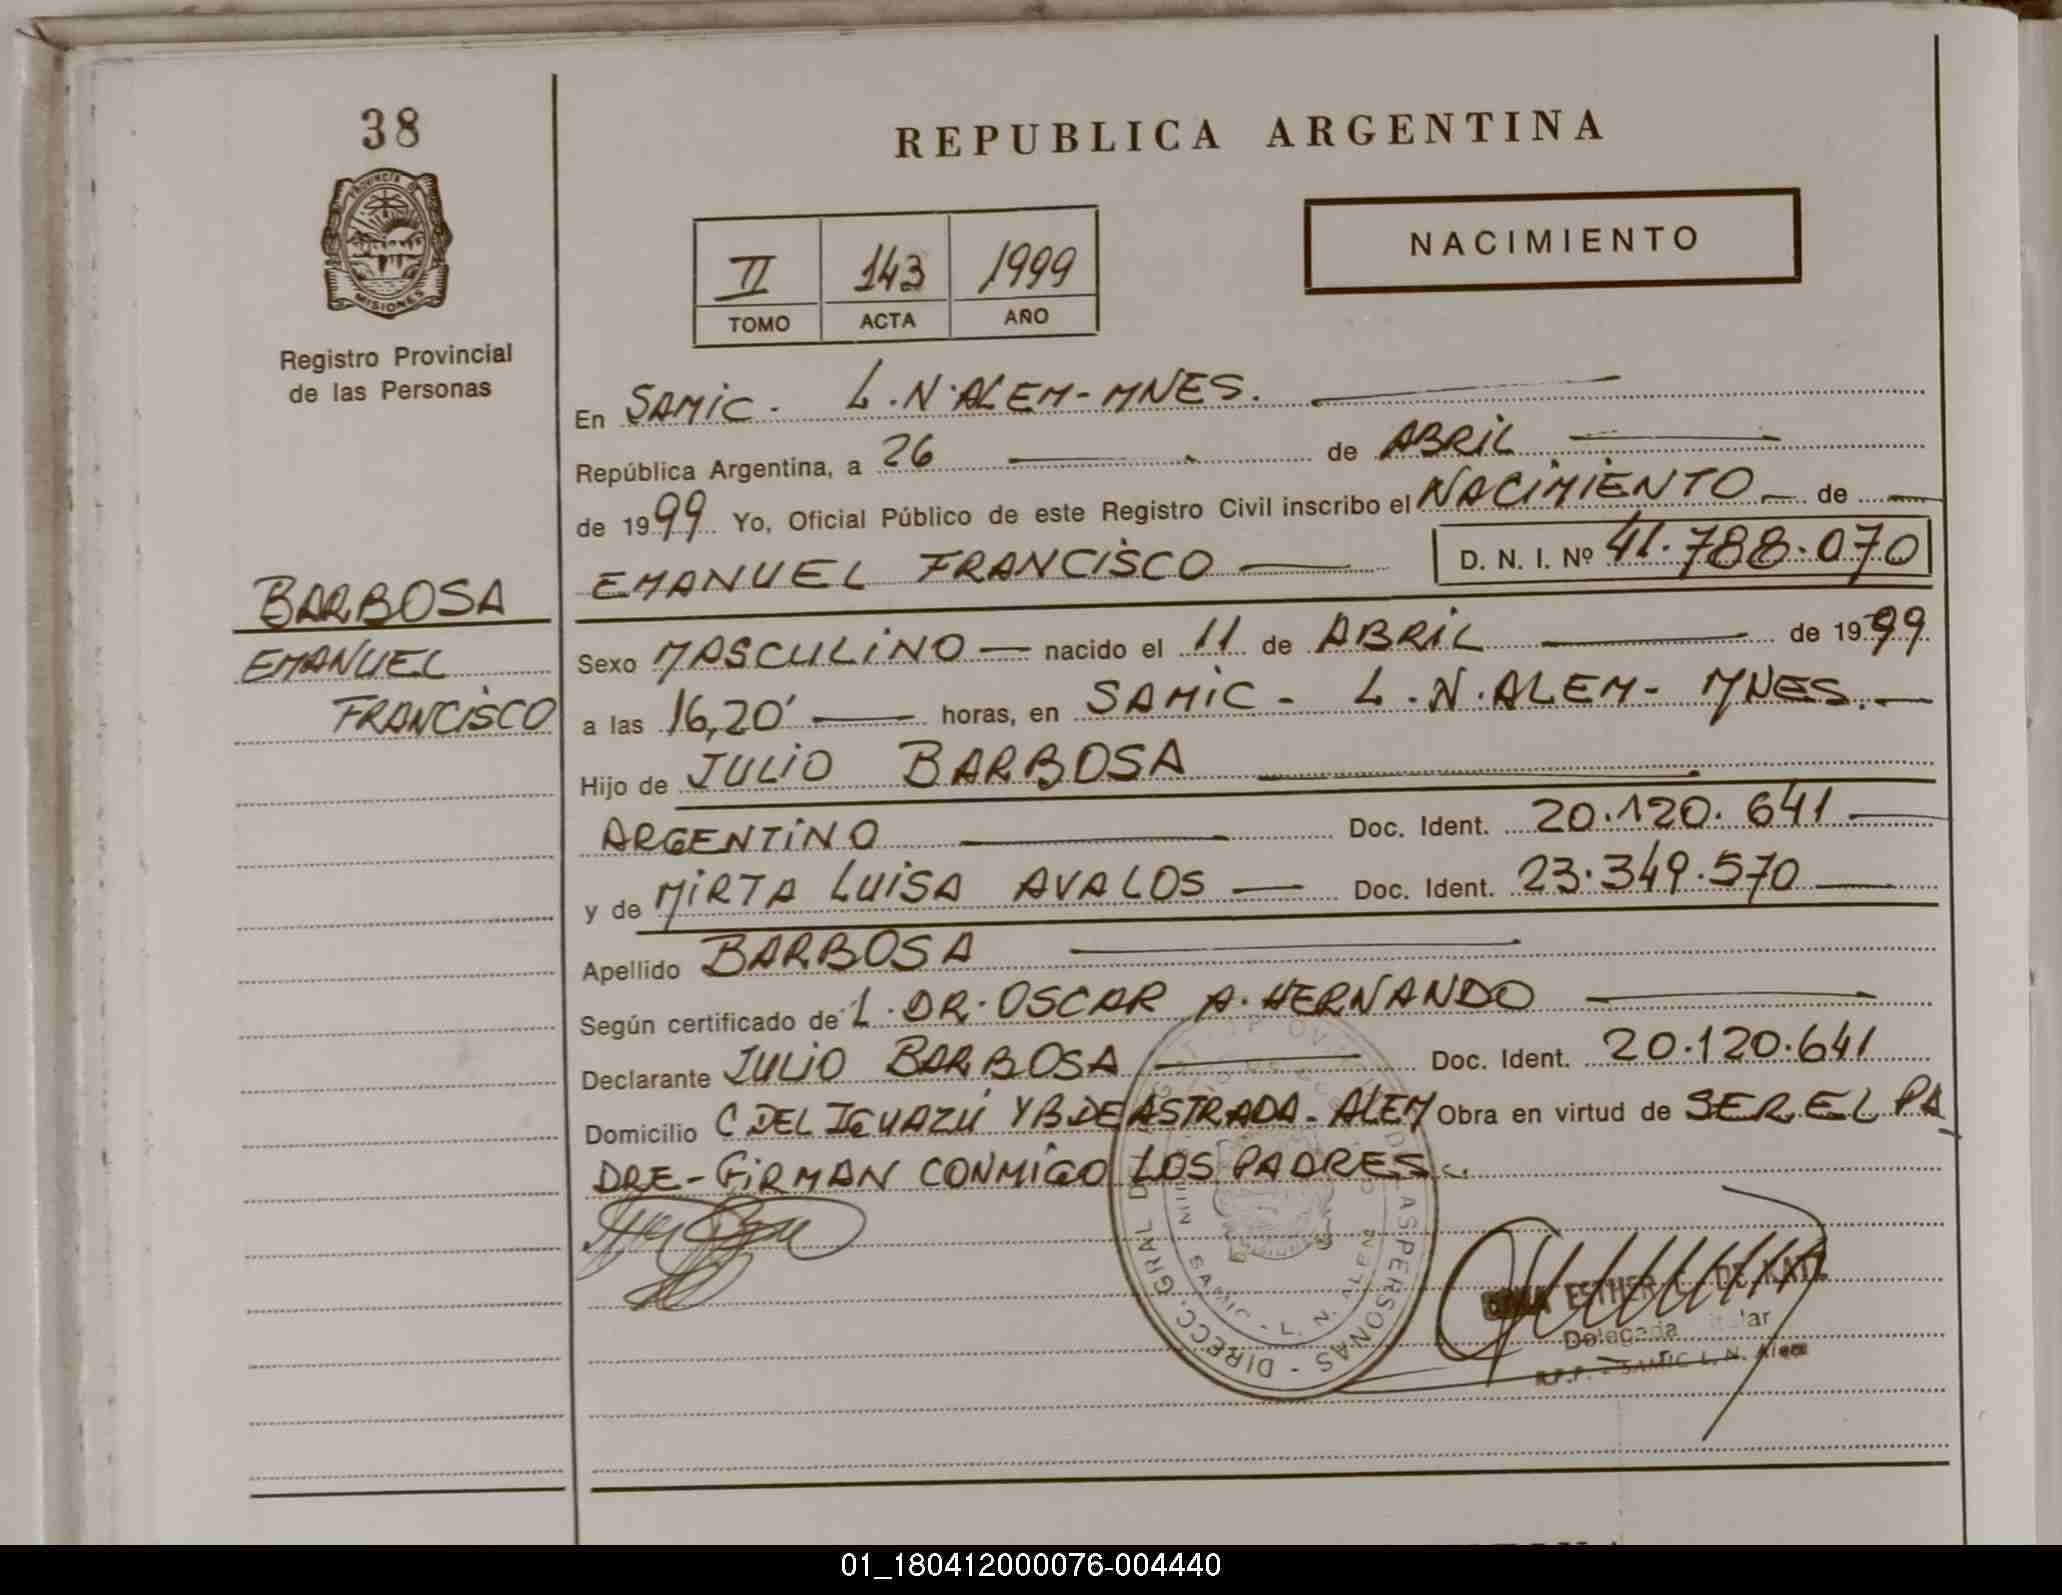 38
REPUBLICA ARGENTINA
PROVINCIA D
MISIONES
Registro Provincial
de las Personas
II 143 1999
TOMO ACTA AÑO
NACIMIENTO
En SAMIC. L.N.ALEM-MNES.
República Argentina, a 26 de ABRIL
de 1999 Yo, Oficial Público de este Registro Civil inscribo el NACIMIENTO de
EMANUEL FRANCISCO D. N. I. Nº 41.788.070
BARBOSA
EMANUEL
FRANCISCO
Sexo MASCULINO nacido el 11 de ABRIL de 1999
a las 16,20' horas, en SAMIC - L.N.ALEM- MNES.
Hijo de JULIO BARBOSA
ARGENTINO Doc. Ident. 20.120.641
y de MIRTA LUISA AVALOS Doc. Ident. 23.349.570
Apellido BARBOSA
Según certificado de L.DR.OSCAR A.HERNANDO
Declarante JULIO BARBOSA Doc. Ident. 20.120.641
Domicilio C DEL IGUAZÚ Y B DE ASTRADA-ALEM Obra en virtud de SER EL PA
DRE-FIRMAN CONMIGO LOS PADRES.
DIRECC. GRAL D PERSONAS
SAMIC - L. N. ALEM
ESTHER DE KATZ
Delegada
R.P.P. - SAMIC L. N. Alem
01_180412000076-004440